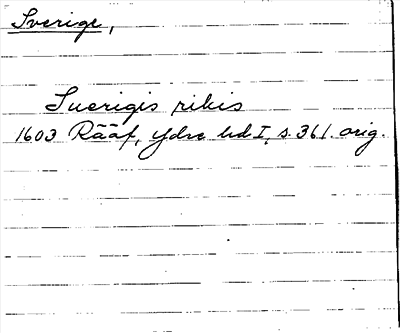 Sverige,
Suerigis rikis
1603 Rääf, Ydre bd I, s. 361. orig.